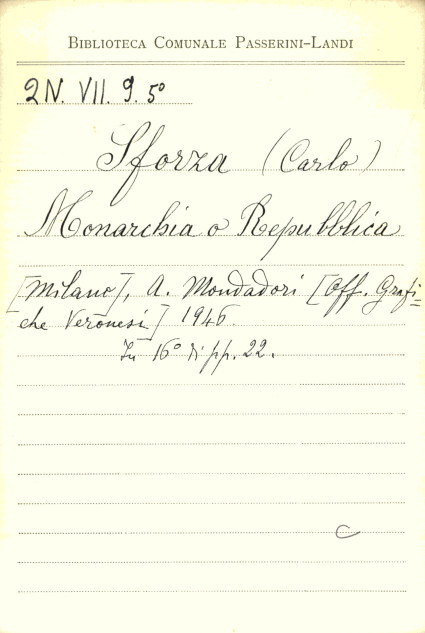 BIBLIOTECA COMUNALE PASSERINI-LANDI
2N. VII. 9. 5º
Sforza (Carlo)
Monarchia o Repubblica
[Milano], A. Mondadori [Off. Grafi=
che Veronesi] 1946.
In 16° di pp. 22.
C